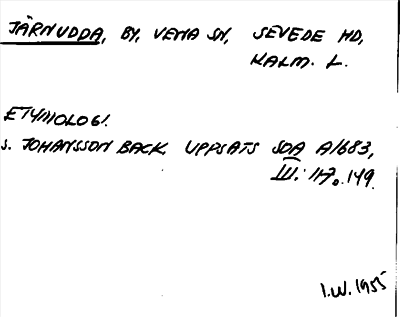 JÄRNUDDA, BY, VENA SN, SEVEDE HD,
KALM. L.
ETYMOLOGI.
S. JOHANSSON BACK. UPPSATS SDA A1683,
III: 117 o. 149.
I.W. 1955